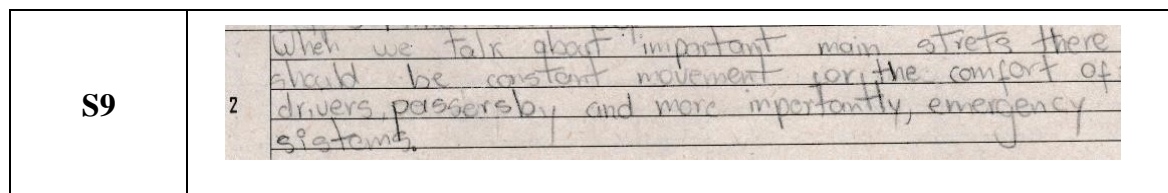 S9
2
When we talk about important main strets there
should be constant movement for the comfort of
drivers, passersby and more inportantly, emergency
sistems.